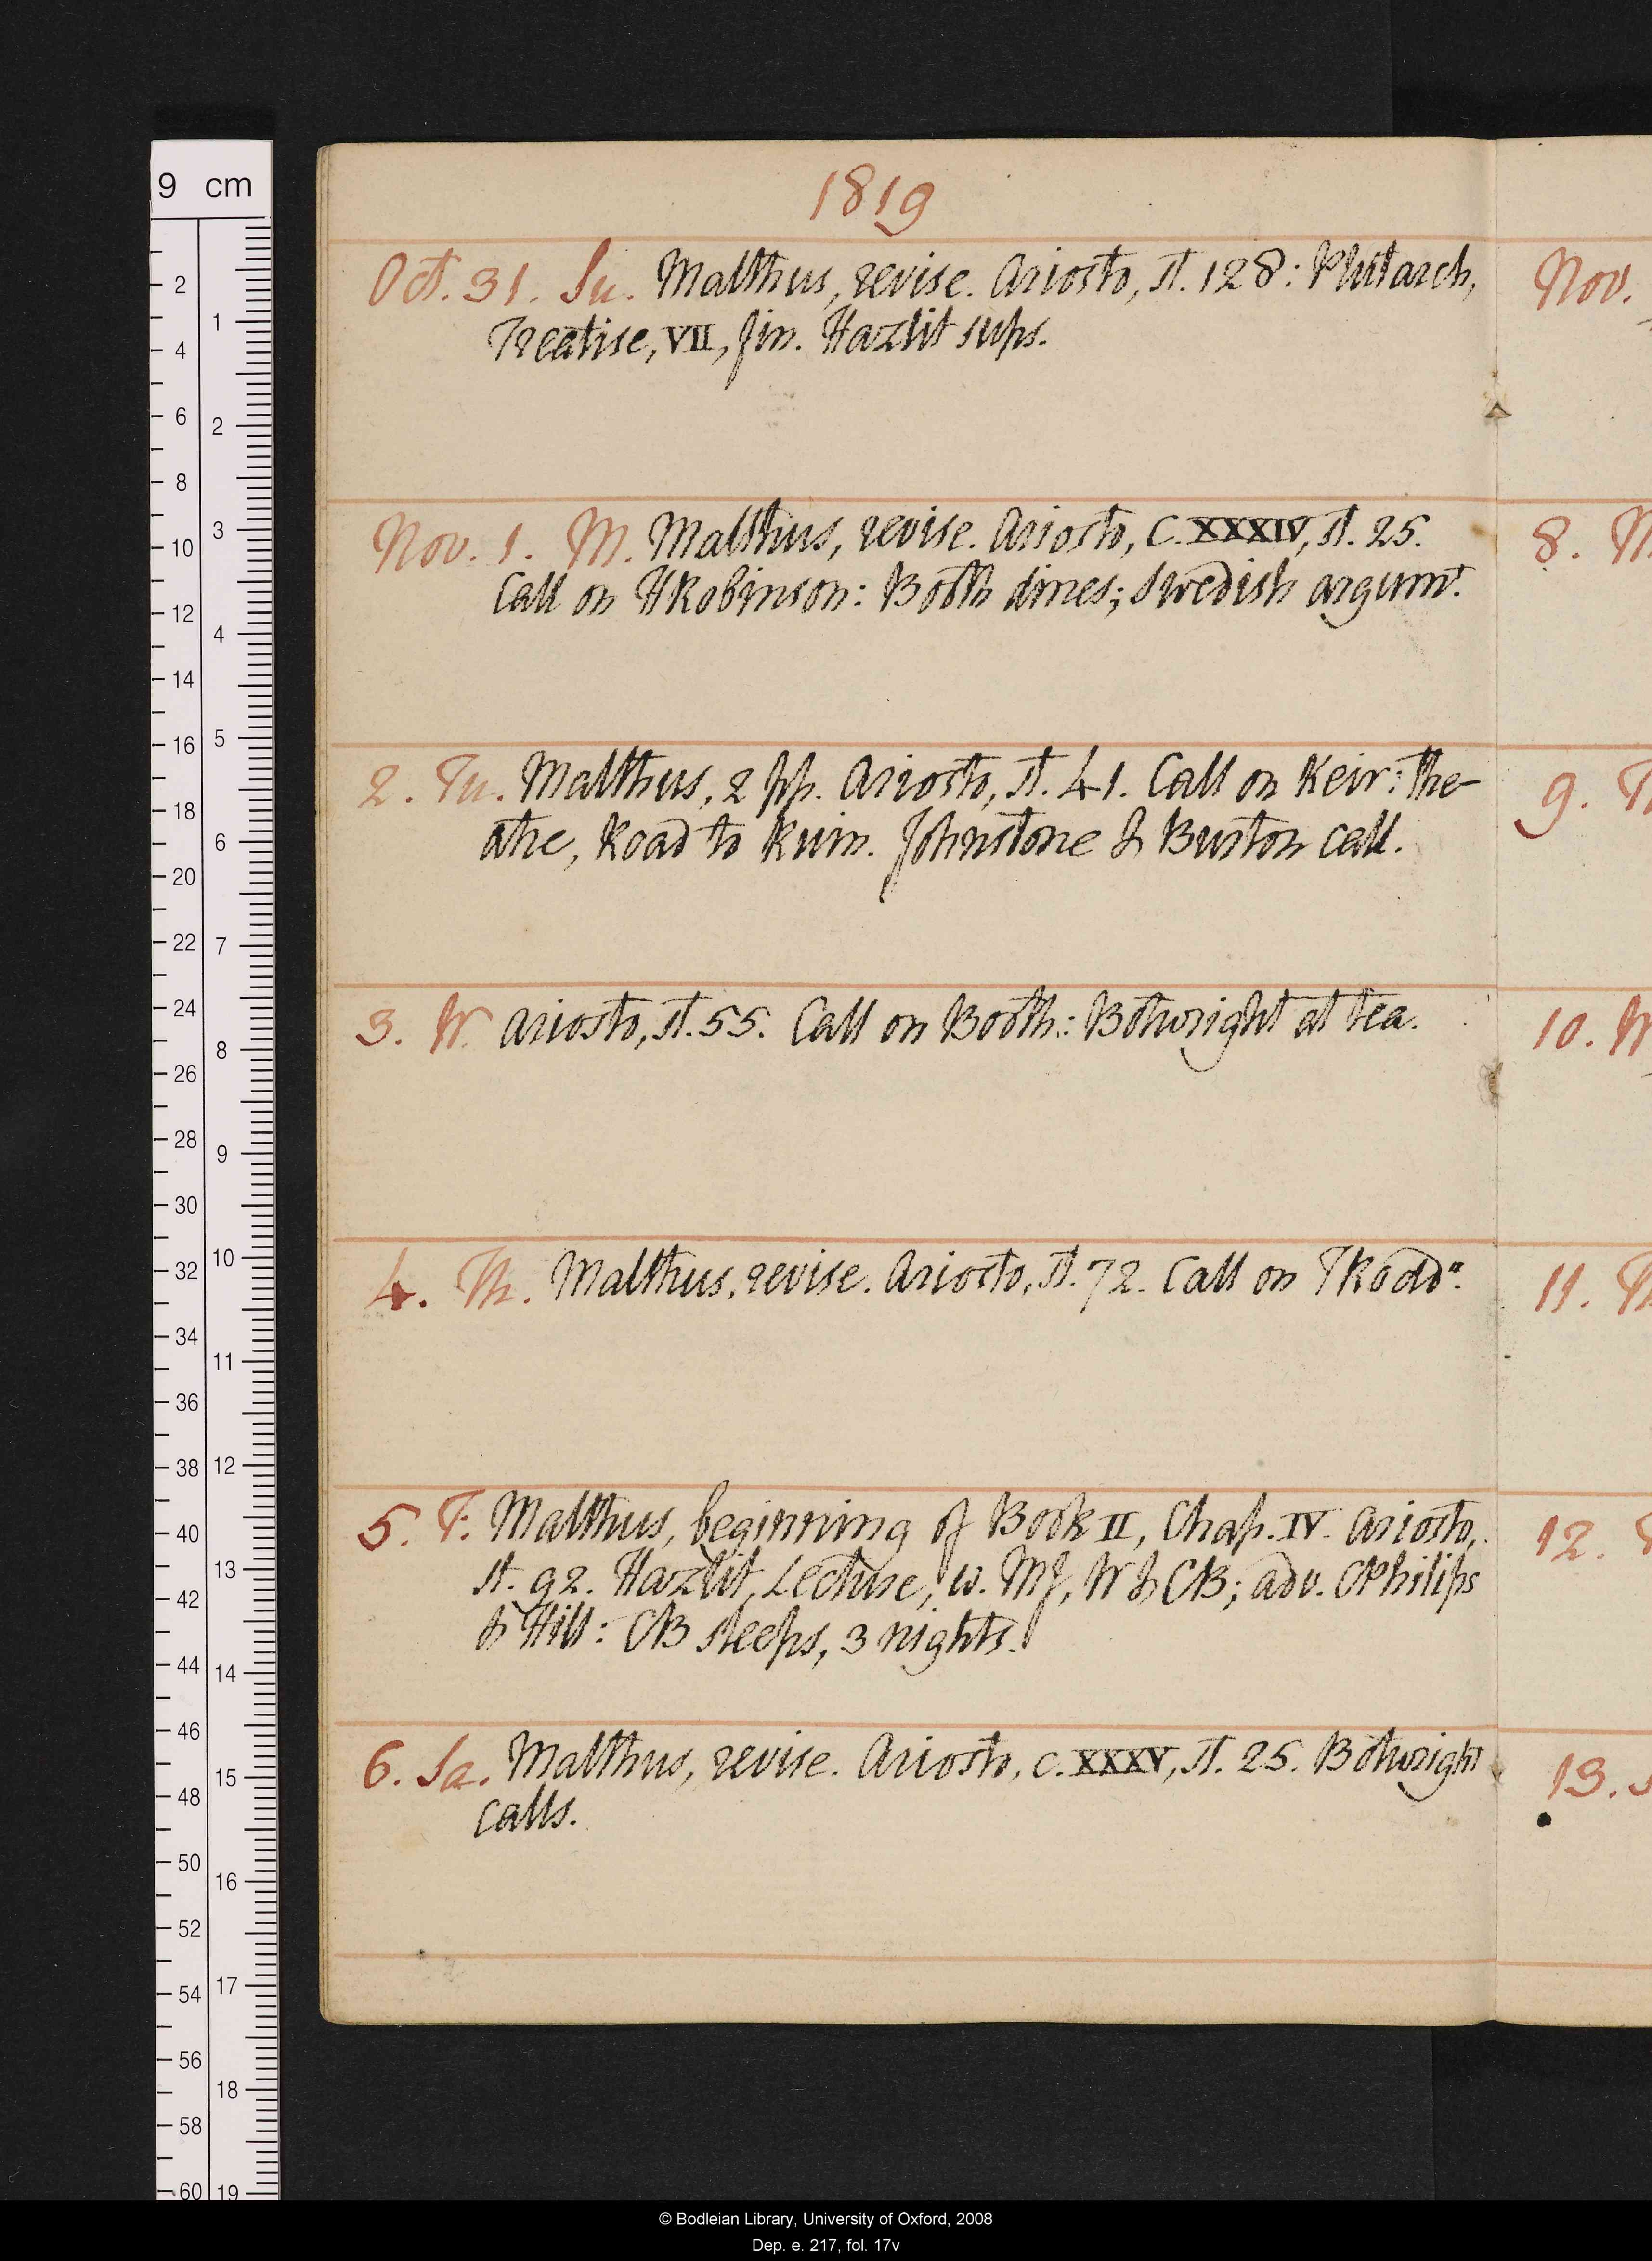 1819
Oct. 31. Su. Malthus, revise. Ariosto, st. 128: Plutarch,
Treatise, VII, fin. Hazlit sups.
Nov. 1. M. Malthus, revise. Ariosto, C. XXXIV, st. 25.
Call on HRobinson: Booth dines; Swedish argumt.
2. Tu. Malthus, 2 pp. Ariosto, st. 41. Call on Keir: the-
atre, Road to Ruin. Johnstone & Buxton call.
3. W. Ariosto, st. 55. Call on Booth: Botwright at tea.
4. Th. Malthus, revise. Ariosto, st. 72. Call on TRodd.
5. F. Malthus, beginning of Book II, Chap. IV. Ariosto,
st. 92. Hazlit, Lecture, w. MJ, W & CB; adv. CPhilips
& Hill: CB sleeps, 3 nights.
6. Sa. Malthus, revise. Ariosto, c. XXXV, st. 25. Botwright
calls.
Nov.
8. M
9. T
10. W
11. Th
12.
13. S
9 cm
© Bodleian Library, University of Oxford, 2008
Dep. e. 217, fol. 17v